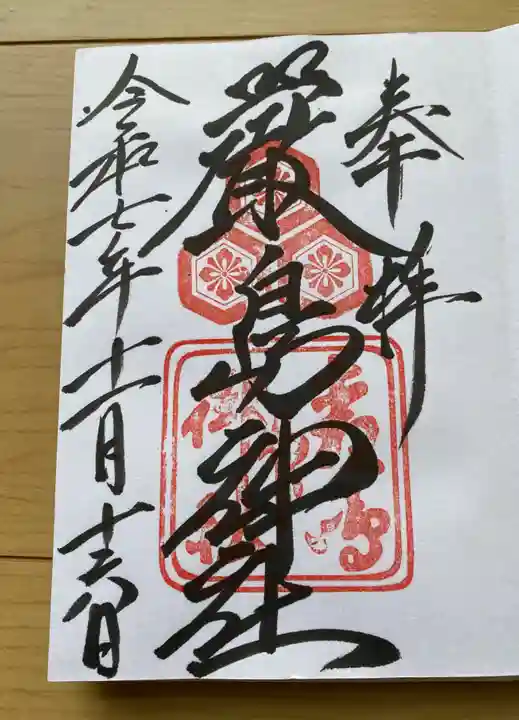 奉拝
嚴島神社
令和七年十一月十六日